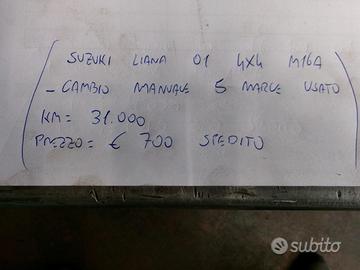 SUZUKI LIANA 01 4X4 M16A
- CAMBIO MANUALE 5 MARCE USATO
KM = 31.000
PREZZO = € 700 SPEDITO
subito